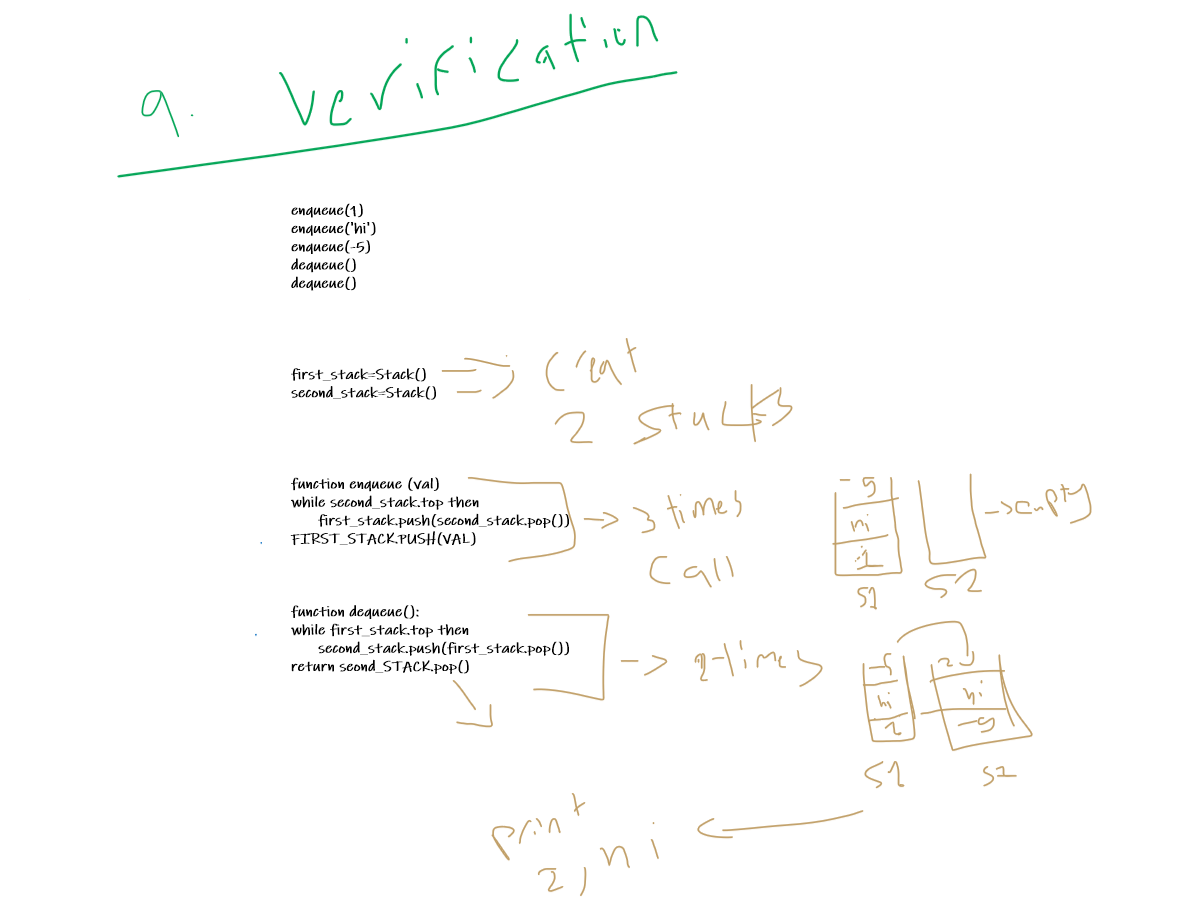 9. Verification
enqueue(1)
enqueue('hi')
enqueue(-5)
dequeue()
dequeue()
first_stack=Stack()
second_stack=Stack()
Creat
2 stacks
function enqueue (val)
while second_stack.top then
first_stack.push(second_stack.pop())
FIRST_STACK.PUSH(VAL)
3 times
Call
-5
hi
1
S1
S2
empty
function dequeue():
while first_stack.top then
second_stack.push(first_stack.pop())
return seond_STACK.pop()
2-times
-5
hi
1
S1
hi
-5
print
hi